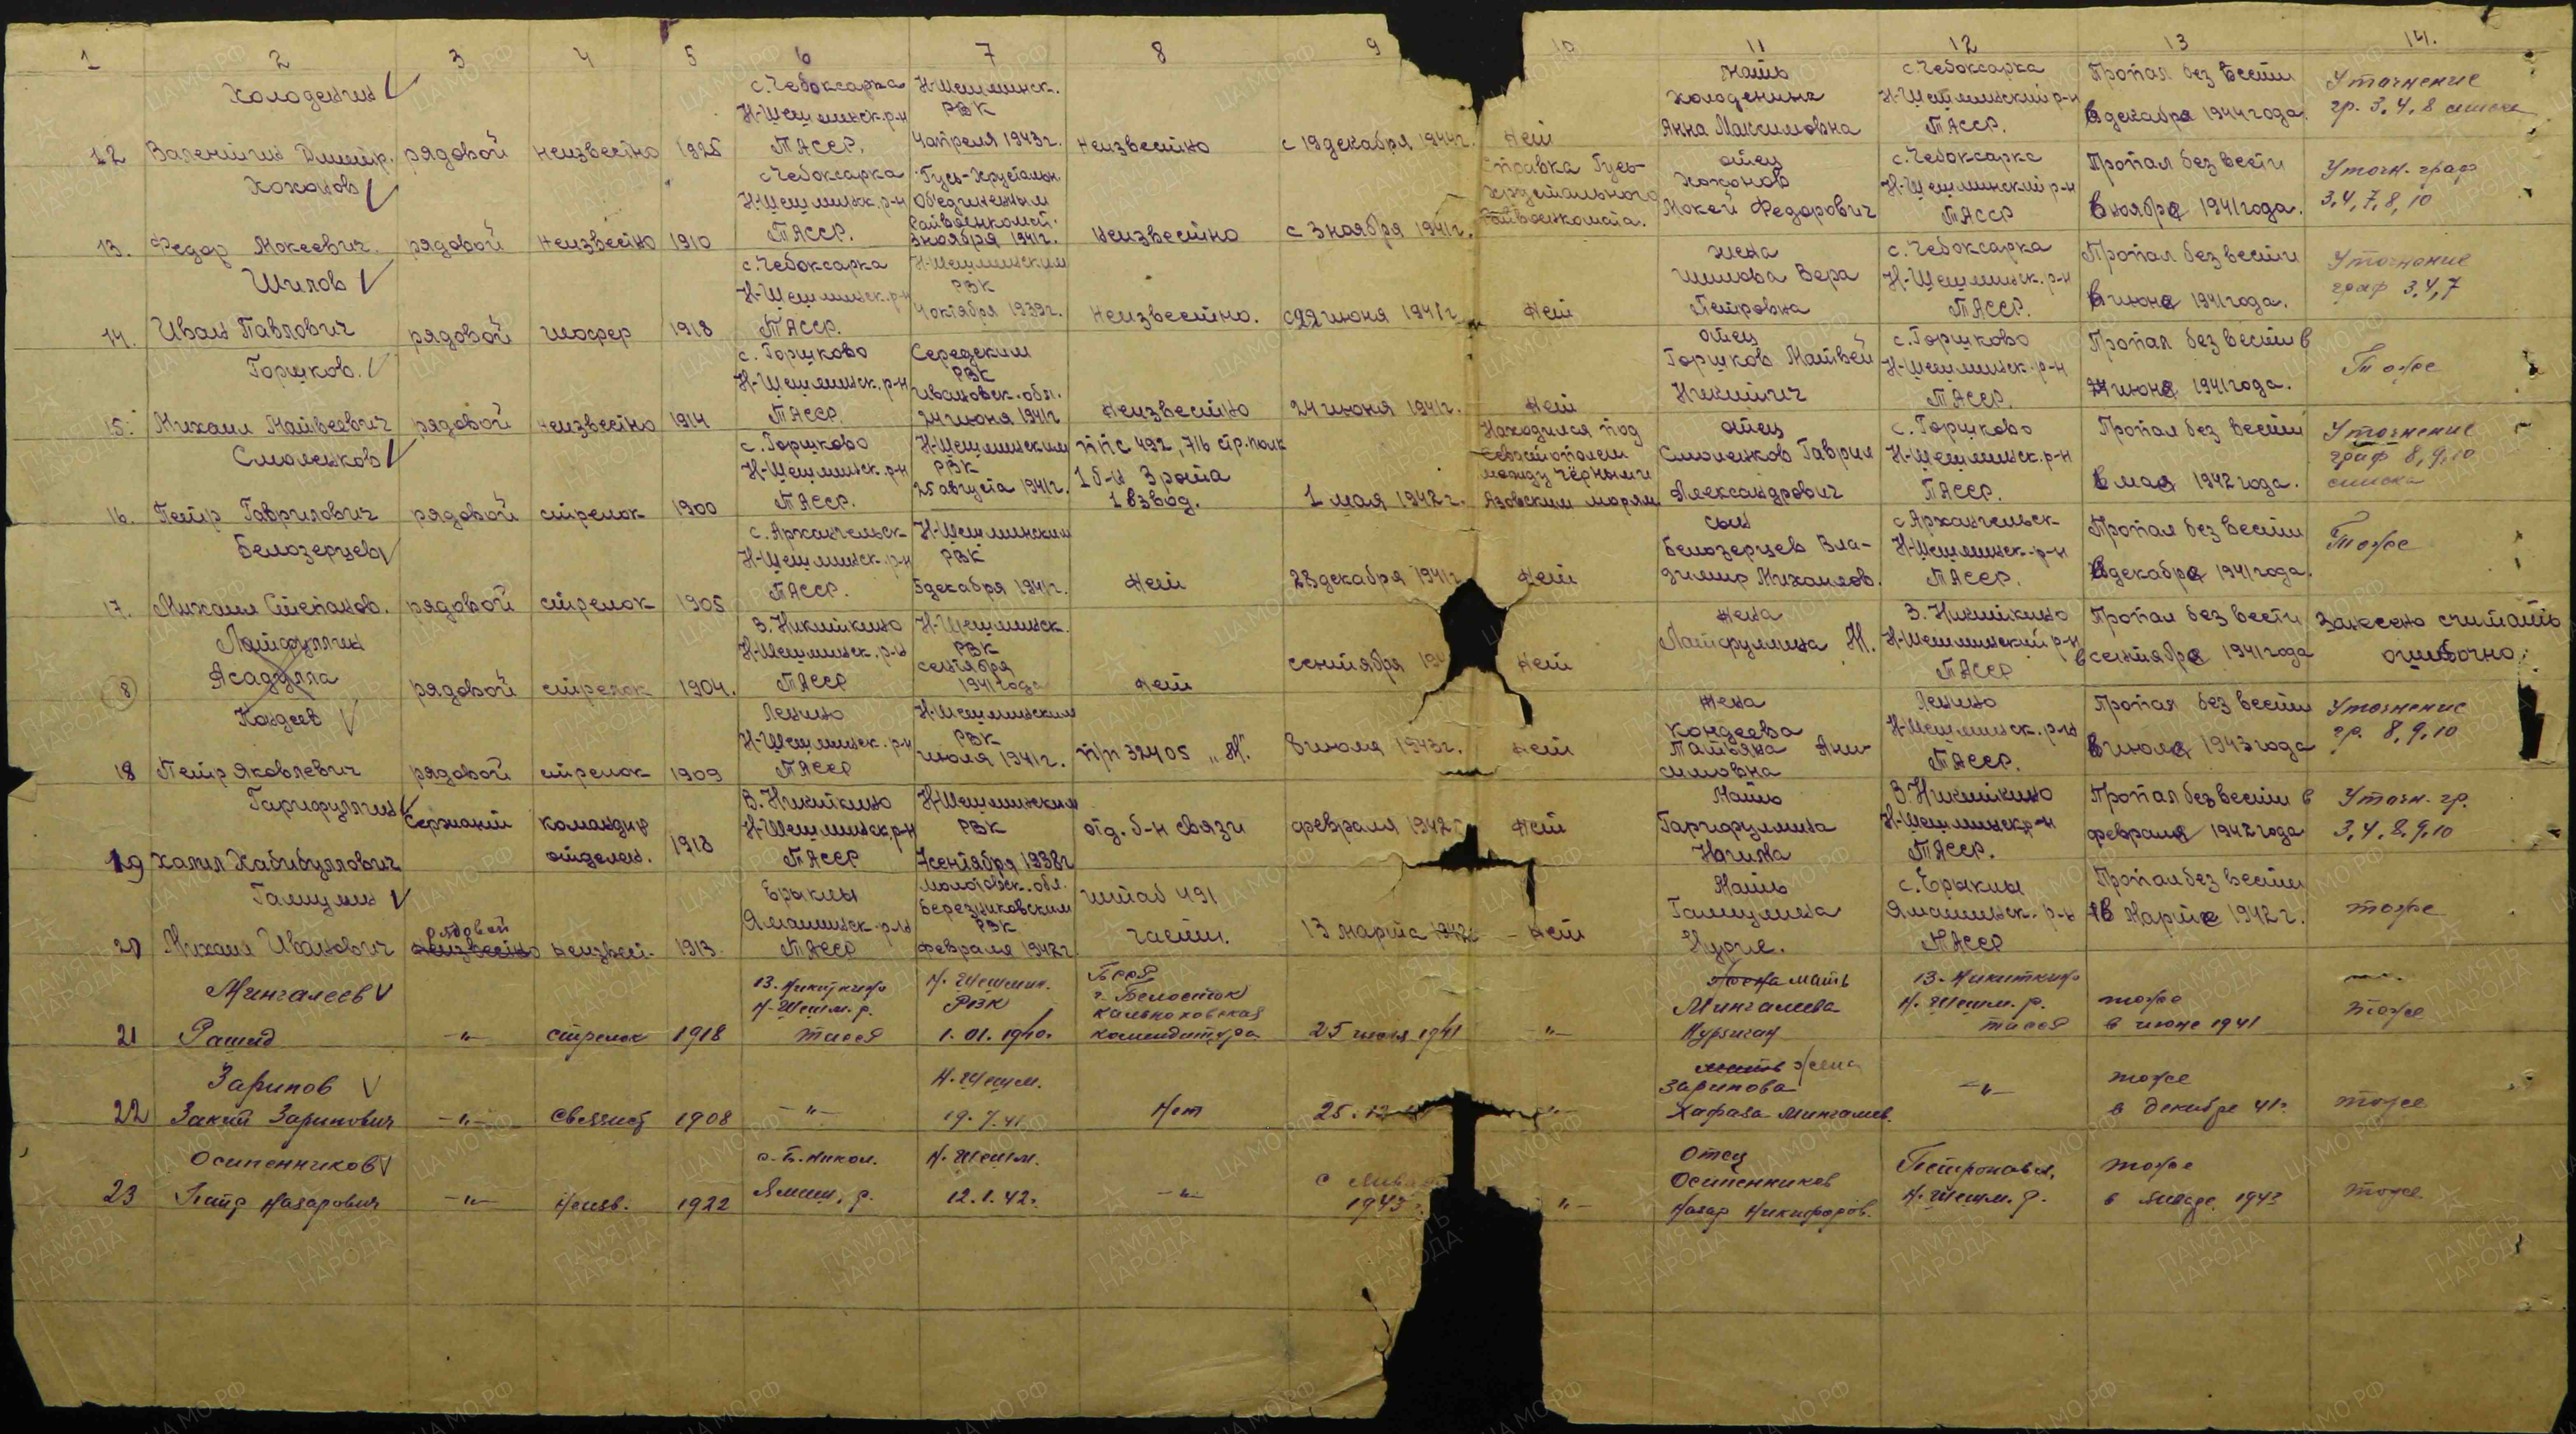 1 2 3 4 5 6 7 8 9 10 11 12 13 14.
Холоденин с. Чебоксарка Н-Шешминск. Мать с. Чебоксарка Пропал без вести Уточнение
Н-Шешминск. р-н РВК Холоденина Н-Шешминский р-н в декабре 1944 года. гр. 3, 4, 8 списка
12 Валентин Дмитр. рядовой неизвестно 1925 ТАССР. 4 апреля 1943 г. неизвестно с 19 декабря 1944 г. Нет Анна Максимовна ТАССР.
Хохонов с Чебоксарка Гусь-Хрустальн. Справка Гусь- отец с. Чебоксарка Пропал без вести Уточн. граф
Н-Шешминск. р-н Объединенным Хрустального Хохонов Н-Шешминский р-н в ноябре 1941 года. 3, 4, 7, 8, 10
Райвоенкомат. Райвоенкомата. Мокей Федорович ТАССР
13. Федор Мокеевич. рядовой неизвестно 1910 ТАССР. 3 ноября 1941 г. неизвестно с 3 ноября 1941 г.
Шилов с. Чебоксарка Н-Шешминским жена с. Чебоксарка Пропал без вести Уточнение
Н-Шешминск. р-н РВК Шилова Вера Н-Шешминск. р-н в июне 1941 года. граф 3, 4, 7
14. Иван Павлович рядовой шофер 1918 ТАССР. 4 октября 1939 г. Неизвестно. с 22 июня 1941 г. Нет Петровна ТАССР.
Горшков. с. Горшково Середским отец с. Горшково Пропал без вести в Тоже
Н-Шешминск. р-н РВК Горшков Матвей Н-Шешминск. р-н июне 1941 года.
Ивановск. обл.
15. Михаил Матвеевич рядовой неизвестно 1914 ТАССР. 24 июня 1941 г. Неизвестно 24 июня 1941 г. Нет Никитич ТАССР.
Смоленков с. Горшково Н-Шешминским ППС 492, 716 стр. полк Находился под отец с. Горшково Пропал без вести Уточнение
Н-Шешминск. р-н РВК 1 б-н 3 рота Севастополем Смоленков Гаврил Н-Шешминск. р-н в мае 1942 года. граф 8, 9, 10
между чёрным и списка
16. Петр Гаврилович рядовой стрелок 1900 ТАССР. 25 августа 1941 г. 1 взвод. 1 мая 1942 г. Азовским морям Александрович ТАССР.
Белозерцев с. Архангельск- Н-Шешминским сын с Архангельск- Пропал без вести Тоже
Н-Шешминск. р-н РВК Белозерцев Вла- Н-Шешминск. р-н в декабре 1941 года.
17. Михаил Степанов. рядовой стрелок 1905 ТАССР. 5 декабря 1941 г. Нет 23 декабря 1941 г. Нет димир Михайлов. ТАССР.
Латфуллин З. Никиткино Н-Шешминск. жена З. Никиткино Пропал без вести Занесено считать
Н-Шешминск. р-н РВК Латфуллина М. Н-Шешминский р-н в сентябре 1941 года ошибочно.
сентября
8 Асадулла рядовой стрелок 1904. ТАССР 1941 года Нет сентября 194 Нет ТАССР
Кондеев Ленино Н-Шешминским жена Ленино Пропал без вести Уточнение
Н-Шешминск. р-н РВК Кондеева Н-Шешминск. р-н в июле 1943 года гр. 8, 9, 10
18 Петр Яковлевич рядовой стрелок 1909 ТАССР июля 1941 г. п/п 32405 „М". В июля 1943 г. Нет Татьяна Ани- ТАССР.
симовна
Гарифуллин Сержант командир В. Никиткино Н-Шешминским Мать В. Никиткино Пропал без вести в Уточн. гр.
Н-Шешминск р-н РВК отд. б-н связи февраля 1942 г Нет Гарифуллина Н-Шешминск р-н феврале 1942 года 3, 4, 8, 9, 10
19 Халил Хабибуллович отделен. 1918 ТАССР 7 сентября 1938 г Нагима ТАССР.
Галиулин Ерыклы Молотовск. обл. штаб 491 Мать с. Ерыклы Пропал без вести
рядовой Ямашинск. р-н Березниковским Галиулина Ямашинск. р-н в Марте 1942 г. тоже
РВК
20 Михаил Иванович неизвестно неизвест. 1913. ТАССР февраля 1942 г. части. 13 марта 1942 - Нет Нурге. ТАССР
Мингалеев В. Никиткино Н. Шешмин. БССР жена мать В. Никиткино
Н-Шешм. р. РВК г. Белосток Мингалиева Н. Шешм. р. тоже тоже
21 Рашид -"- стрелок 1918 ТАССР 1. 01. 1940. комендатура 25 июня 1941 "- Нурзиган ТАССР в июне 1941
Зарипов Н. Шешм. мать жена тоже
Зарипова -"-
22 Закий Зарипович -"- связист 1908 -"- 19. 7. 41 Нет 25. 12 "- Хафаза Мингалиев. в декабре 41 г. тоже
Осипенников с. Б. Никол. Н. Шешм. Отец
с Январ Осипенников Петропавл. тоже
23 Петр Назарович -"- Неизв. 1922 Ямаш. р. 12. 1. 42 г. -"- 1943 г. "- Назар Никифоров. Н. Шешм. р. в январе 1943 тоже
ПАМЯТЬ НАРОДА
ЦАМО.РФ